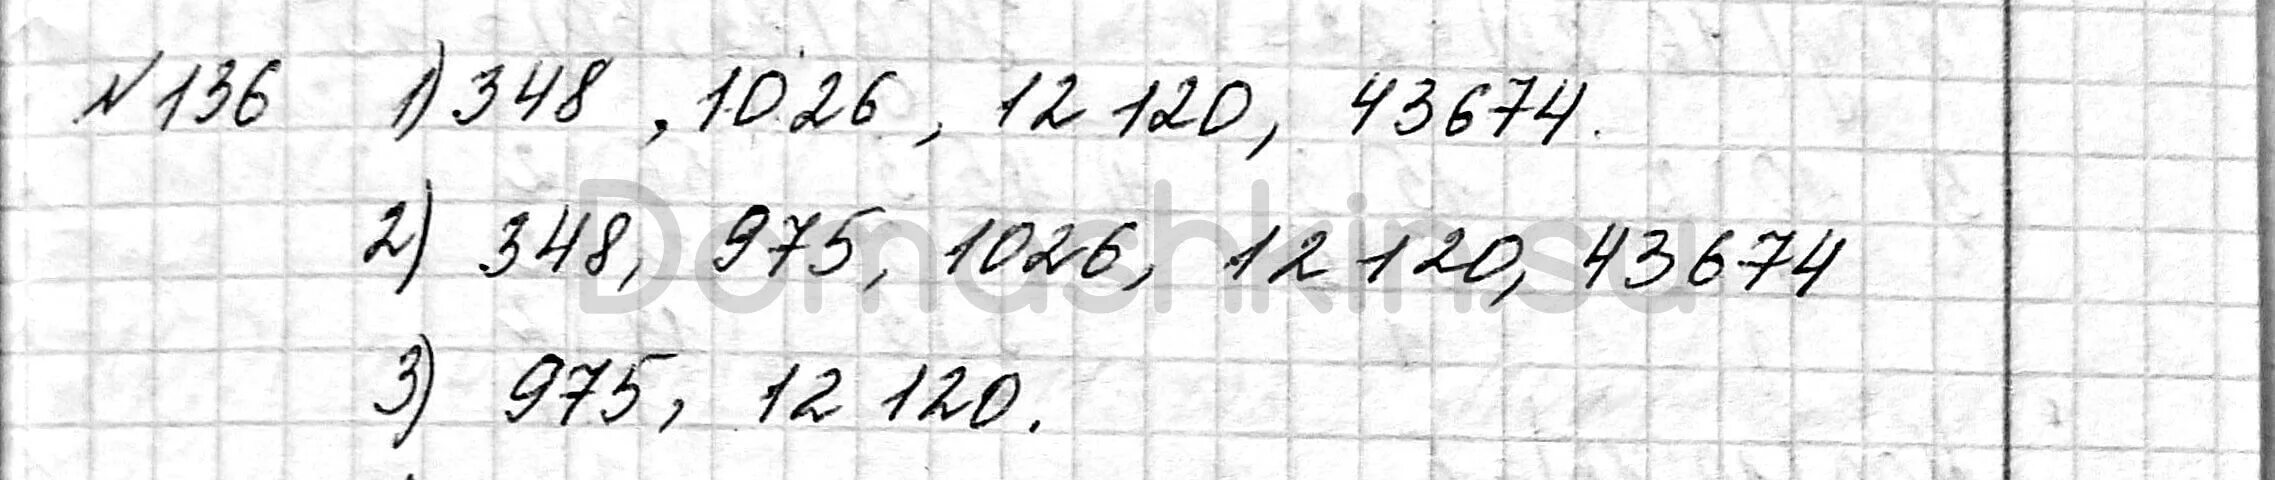 №136 1) 348, 1026, 12 120, 43674.
2) 348, 975, 1026, 12 120, 43674
Domashkin.su
3) 975, 12 120.